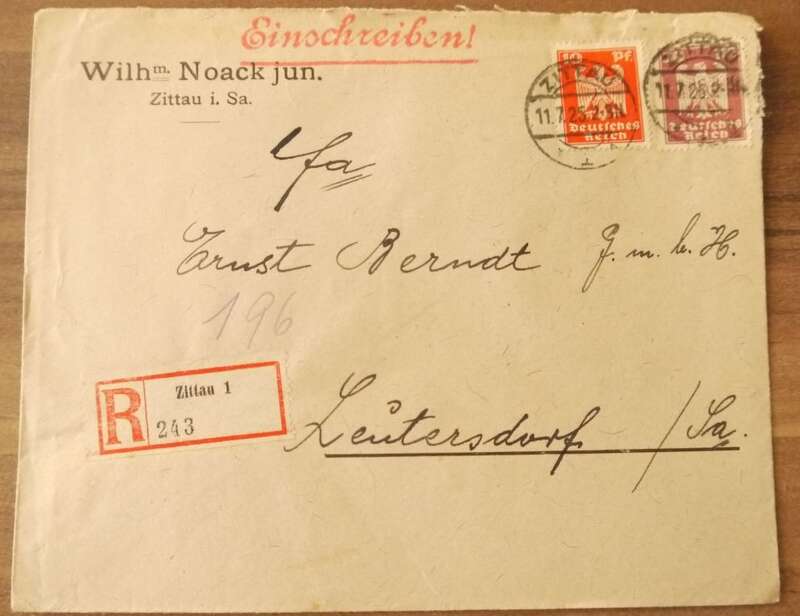 Einschreiben!
Wilhm. Noack jun.
Zittau i. Sa.
10 Pf.
ZITTAU
11.7.25.
Deutsches
Reich
ZITTAU
11.7.25.
Deutsches
Reich
Fa
Ernst Berndt G. m. b. H.
196
R
Zittau 1
243
Leutersdorf / Sa.